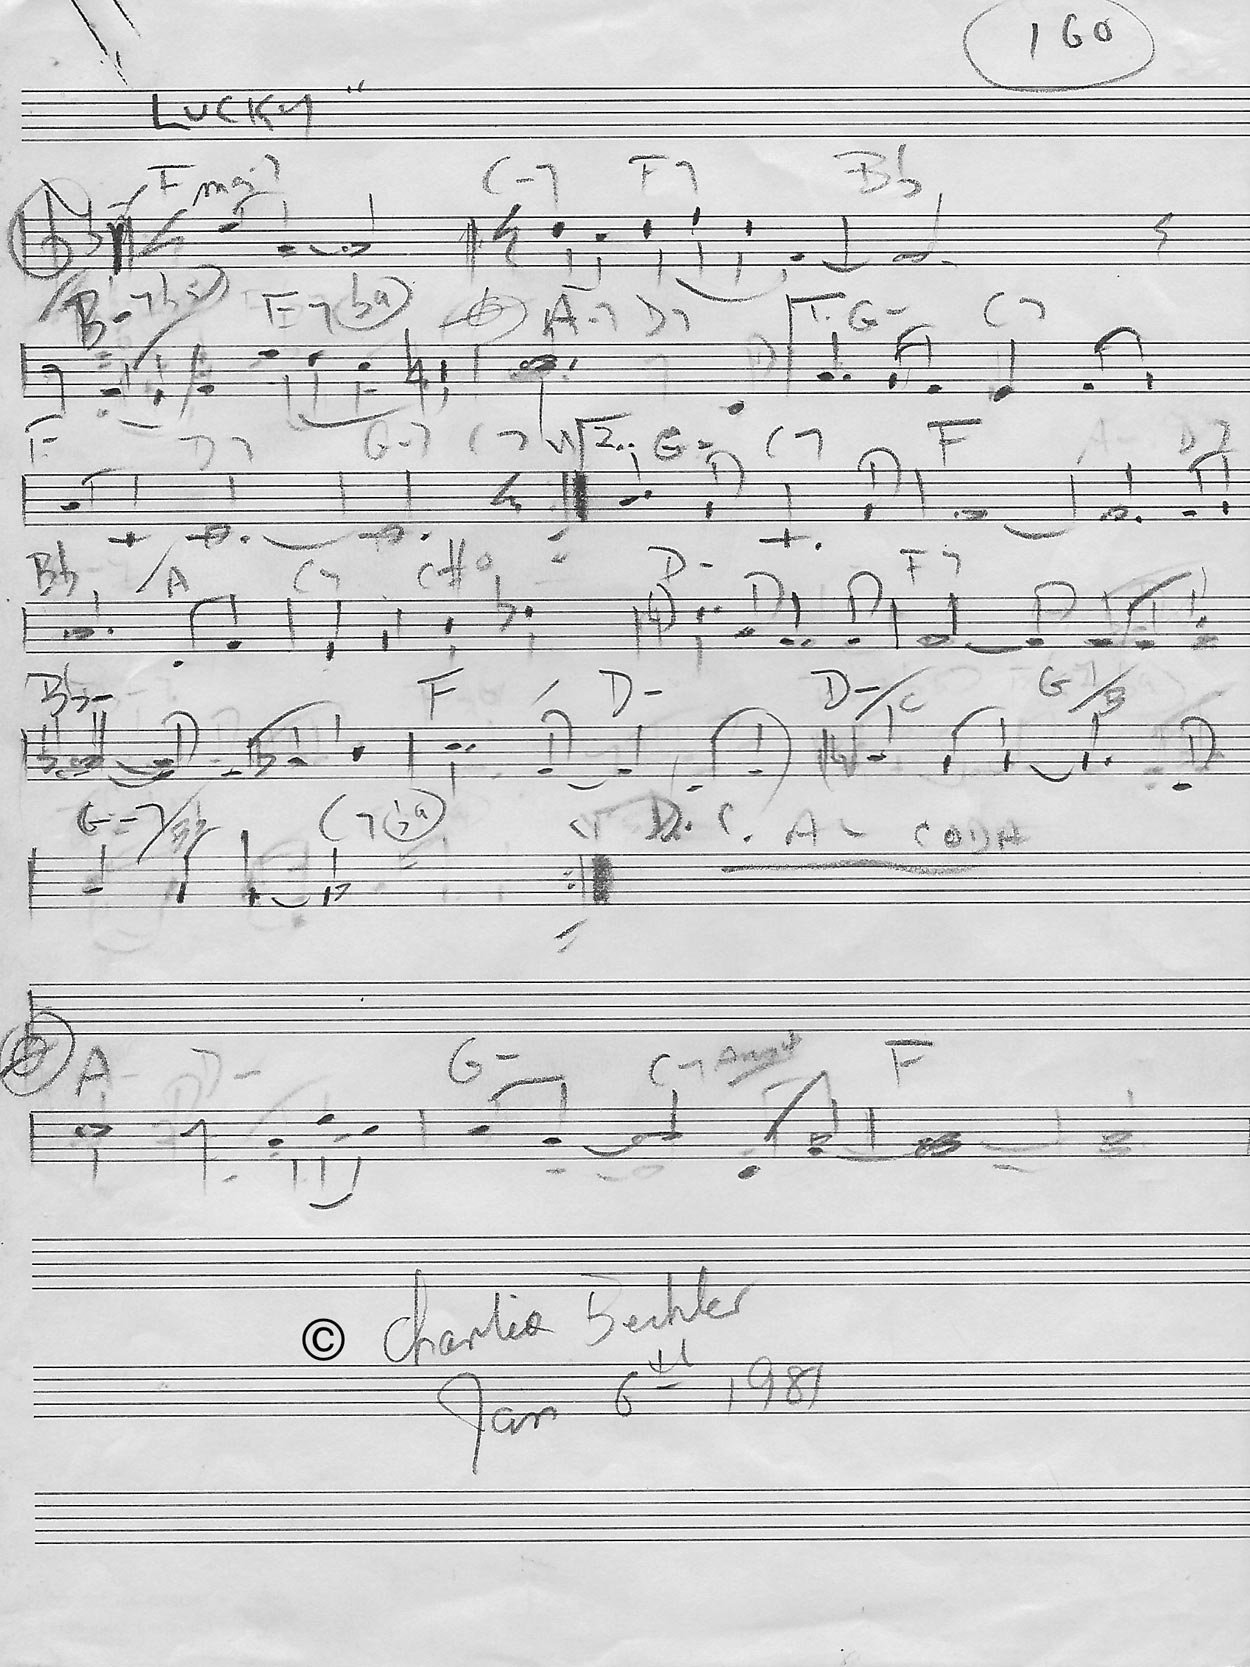 160
"LUCKY"
Fmaj7 C-7 F7 Bb
B-7(b5) E7(b9) A-7 D7 1. G- C7
F D7 G-7 C7 2. G- C7 F A- D7
Bb-7 /A C7 C#o D- F7
Bb- F D- D-/C G7/B
G-7/ C7(b9) D.C. AL CODA
A- D- G- C7 F
© Charlie Bechler
Jan 6th 1981